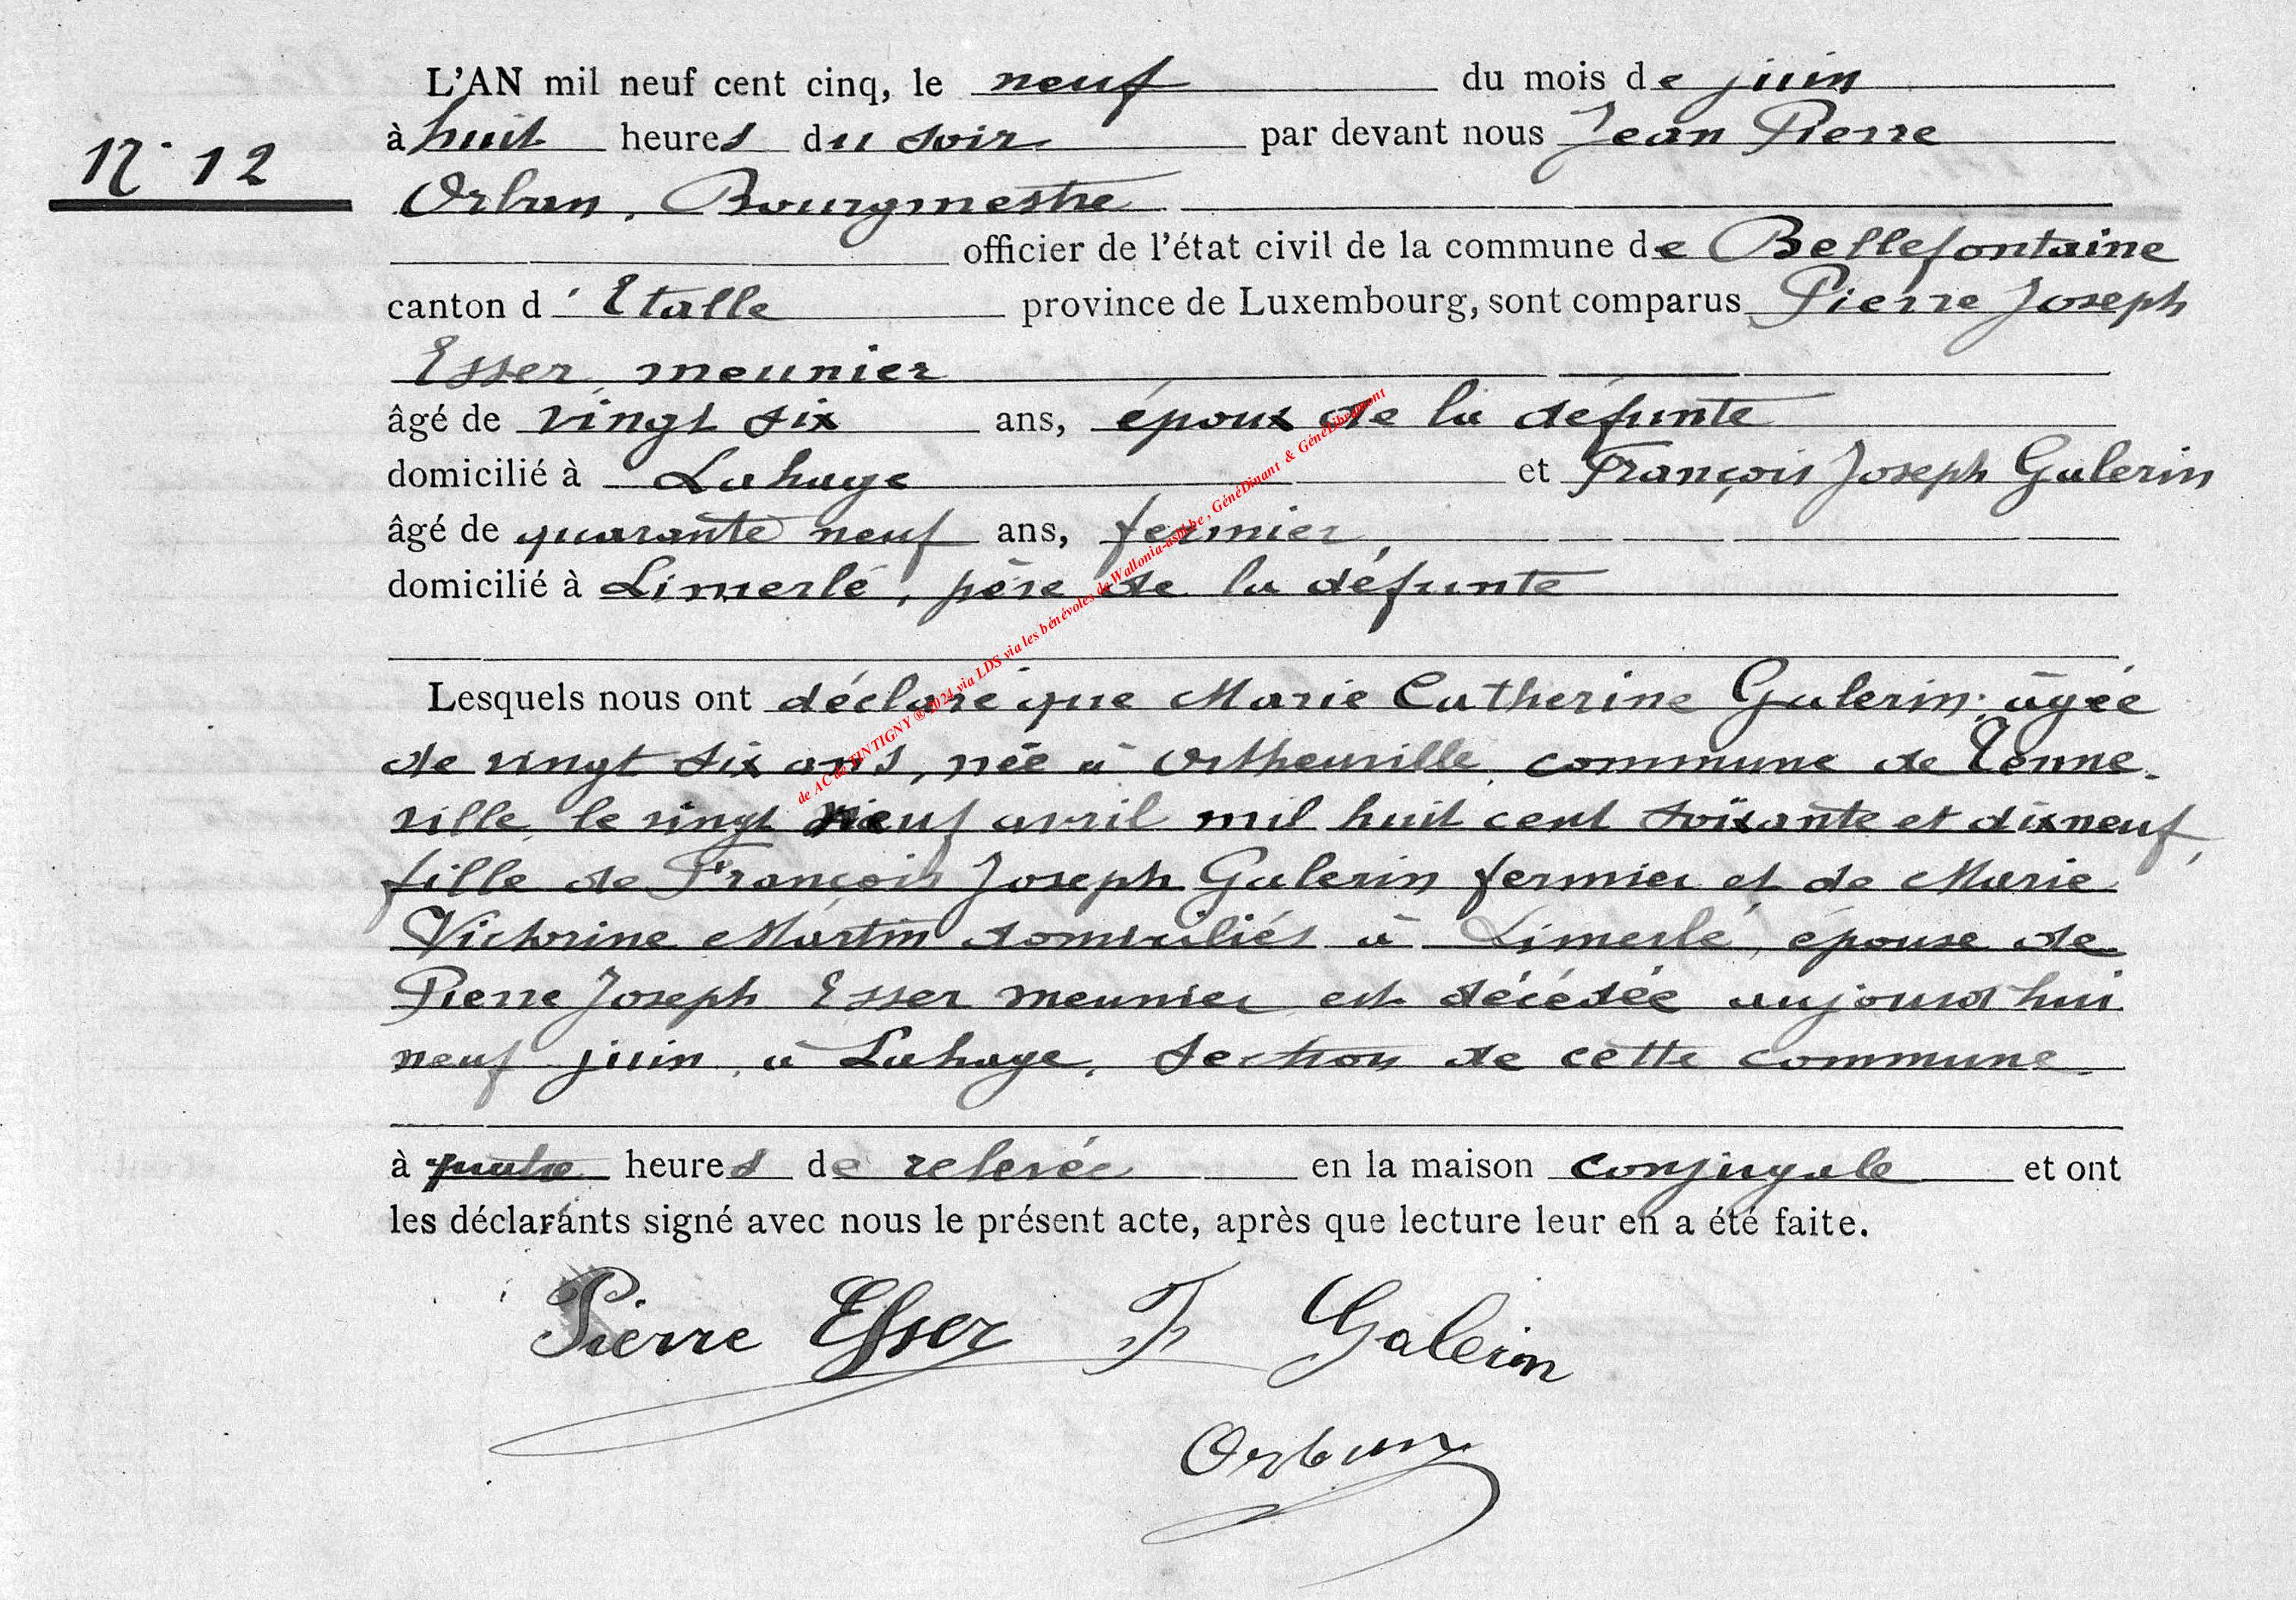 L'AN mil neuf cent cinq, le neuf du mois de juin
N° 12
à huit heures du soir par devant nous Jean Pierre
Orban, Bourgmestre
officier de l'état civil de la commune de Bellefontaine
canton d'Etalle province de Luxembourg, sont comparus Pierre Joseph
Esser, meunier
âgé de vingt six ans, époux de la défunte
domicilié à Lahage et François Joseph Galerin
âgé de quarante neuf ans, fermier,
domicilié à Limerlé, père de la défunte
Lesquels nous ont déclaré que Marie Catherine Galerin, âgée
de vingt six ans, née à Ortheuville, commune de Tenne-
ville, le vingt neuf avril mil huit cent soixante et dix neuf,
fille de François Joseph Galerin fermier et de Marie
Victorine Martin domiciliés à Limerlé, épouse de
Pierre Joseph Esser meunier est décédée aujourd'hui
neuf juin, à Lahage, section de cette commune.
à quatre heures de relevée en la maison conjugale et ont
les déclarants signé avec nous le présent acte, après que lecture leur en a été faite.
Pierre Esser F Galerin
Orban
de AC de TINTIGNY ® 2024 via LDS via les bénévoles de Wallonia-asbl.be, GénéDinant & GénéLibramont